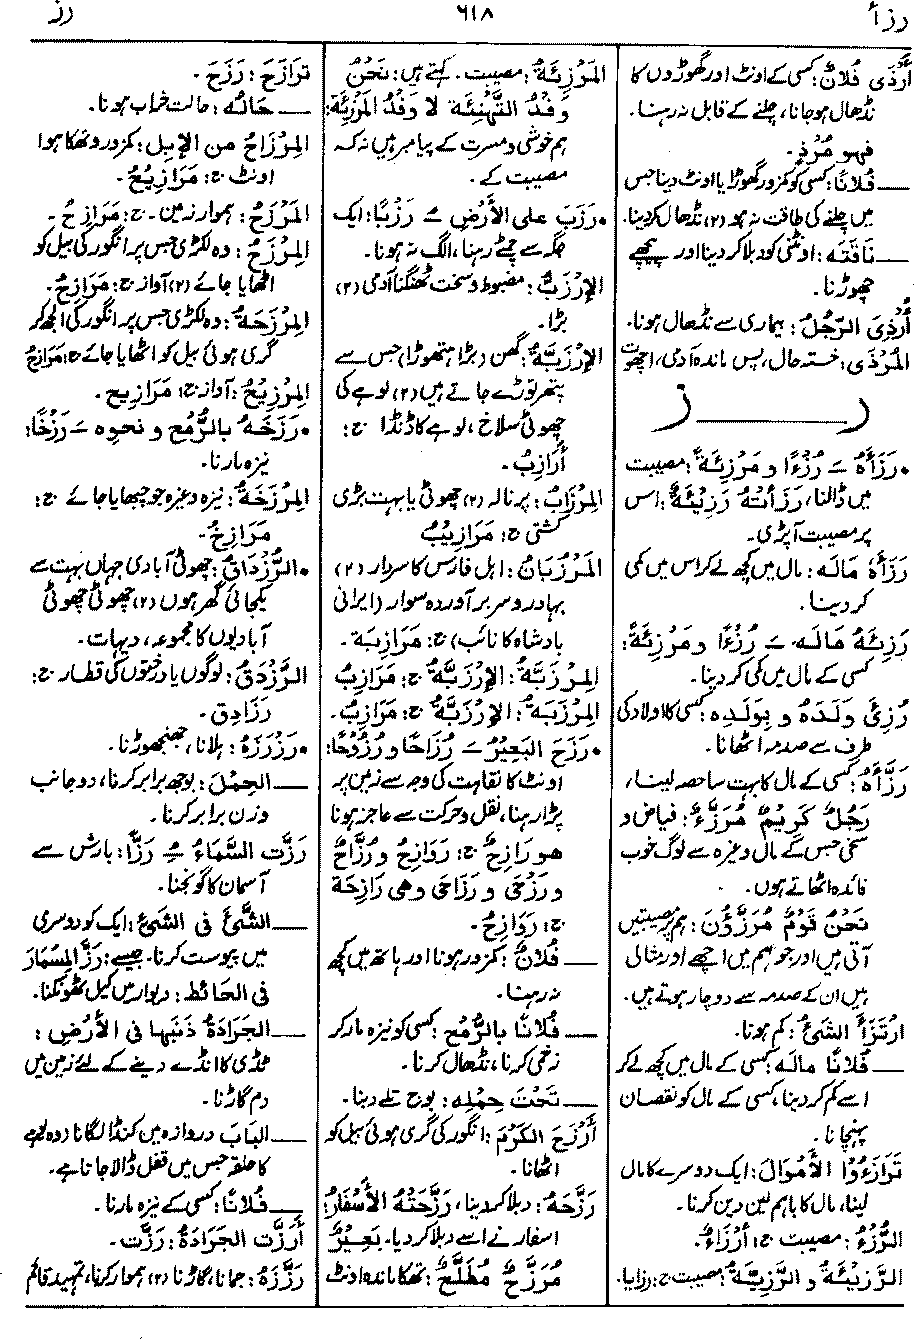 رزأ
۶۱۸
رز
أُرْذِیَ فُلَانٌ: کسی کے اونٹ اور گھوڑوں کا
نڈھال ہوجانا، چلنے کے قابل نہ رہنا۔
فهو مُرْذٍ۔
ــــ فُلَانًا: کسی کو کمزور گھوڑا یا اونٹ دینا جس
میں چلنے کی طاقت نہ ہو (۲) نڈھال کردینا۔
ــــ نَاقَتَه: اونٹنی کو دبلا کردینا اور پیچھے
چھوڑنا۔
أُرْذِیَ الرَّجُلُ: بیماری سے نڈھال ہونا۔
المُرْذَی: خستہ حال، پس ماندہ آدمی، اچھوت
ر ــــــــ ز
• رَزَأَهُ ــَـ رُزْءًا و مَرْزِئَةً: مصیبت
میں ڈالنا، رَزَأَتْهُ رَزِیْئَةٌ: اس
پر مصیبت آپڑی۔
رَزَأَهُ مَالَه: مال میں کچھ لے کر اس میں کمی
کر دینا۔
رَزِئَهُ مَالَه ــَـ رُزْءًا ومَرْزِئَةً:
کسی کے مال میں کمی کر دینا۔
رُزِئَ وَلَدَهُ و بِوَلَدِه: کسی کا اولاد کی
طرف سے صدمہ اٹھانا۔
رَزَّأَهُ: کسی کے مال کا بہت سا حصہ لینا،
رَجُلٌ کَرِیْمٌ مُرَزَّءٌ: فیاض و
سخی جس کے مال وغیرہ سے لوگ خوب
فائدہ اٹھاتے ہوں۔
نَحْنُ قَوْمٌ مُرَزَّؤُنَ: ہم پر مصیبتیں
آتی ہیں اور جو ہم میں اچھے اور مثالی
ہیں ان کے صدمہ سے دوچار ہوتے ہیں۔
ارْتَزَأَ الشَّیْءُ: کم ہونا۔
ــــ فُلَانًا مالَه: کسی کے مال میں کچھ لے کر
اسے کم کر دینا، کسی کے مال کو نقصان
پہنچانا۔
تَرَازَءُوْا الأَمْوَالَ: ایک دوسرے کا مال
لینا، مال کا باہم لین دین کرنا۔
الرُّزْءُ: مصیبت ج: أَرْزَاءٌ۔
الرَّزِیْئَةُ و الرَّزِیَّةُ: مصیبت ج: رزایا۔
المَرْزِئَةُ: مصیبت۔ کہتے ہیں: نَحْنُ
وَفْدُ التَّهْنِئَة لا وَفْدُ المَرْزِئَة:
ہم خوشی و مسرت کے پیامبر ہیں نہ کہ
مصیبت کے۔
• رَزَبَ علی الأَرْضِ ــُـ رَزْبًا: ایک
جگہ سے چمٹے رہنا، الگ نہ ہونا۔
الإِرْزَبُّ: مضبوط و سخت ٹھنگنا آدمی (۲)
بڑا۔
الإِرْزَبَّةُ: گھن (بڑا ہتھوڑا) جس سے
پتھر توڑے جاتے ہیں (۲) لوہے کی
چھوٹی سلاخ، لوہے کا ڈنڈا ج:
أَرَازِبُ۔
المِرْزَابُ: پرنالہ (۲) چھوٹی یا بہت بڑی
کشتی ج: مَرَازِیْبُ
المَرْزُبَانُ: اہل فارس کا سردار (۲)
بہادر و سربرآوردہ سوار (ایرانی
بادشاہ کا نائب) ج: مَرَازِبَة۔
المِرْزَبَّةُ: الإِرْزَبَّةُ ج: مَرَازِبُ
المِرْزَبَةُ: الإِرْزَبَّةُ ج: مَرَازِبُ۔
• رَزَحَ البَعِیْرُ ــَـ رُزَاحًا و رُزُوْحًا:
اونٹ کا نقاہت کی وجہ سے زمین پر
پڑا رہنا، نقل و حرکت سے عاجز ہونا
هو رَازِحٌ ج: رَوَازِحُ و رُزَّاحٌ
و رَزْحَی و رَزَاحَی وهی رَازِحَة
ج: رَوَازِحُ۔
ــــ فُلَانٌ: کمزور ہونا اور ہاتھ میں کچھ
نہ رہنا۔
ــــ فُلَانًا بالرُّمْحِ: کسی کو نیزہ مار کر
زخمی کرنا، نڈھال کرنا۔
ــــ تَحْتَ حِمْلِه: بوجھ تلے دبنا۔
أَرْزَحَ الکَرْمَ: انگور کی گری ہوئی بیل کو
اٹھانا۔
رَزَّحَهُ: دبلا کر دینا، رَزَّحَتْهُ الأَسْفَارُ:
اسفار نے اسے دبلا کر دیا۔ بَعِیْرٌ
مُرَزَّحٌ مُطَلَّحٌ: تھکا ماندہ اونٹ
تَرَازَحَ: رَزَحَ۔
ــــ حَالُه: حالت خراب ہونا۔
المِرْزَاحُ من الإِبِل: کمزور و تھکا ہوا
اونٹ ج: مَرَازِیْحُ۔
المَرْزَحُ: ہموار زمین۔ ج: مَرَازِحُ۔
المِرْزَحُ: وہ لکڑی جس پر انگور کی بیل کو
اٹھایا جائے (۲) آواز ج: مَرَازِحُ۔
المِرْزَحَةُ: وہ لکڑی جس پر انگور کی الجھ کر
گری ہوئی بیل کو اٹھایا جائے ج: مَرَازِحُ
المِرْزِیْحُ: آواز ج: مَرَازِیح۔
• رَزَخَهُ بالرُّمْحِ و نحوِه ــَـ رَزْخًا:
نیزہ مارنا۔
المِرْزَخَةُ: نیزہ وغیرہ جو چبھایا جائے ج:
مَرَازِخُ۔
• الرُّزْدَاقُ: چھوٹی آبادی جہاں بہت سے
یکجائی گھر ہوں (۲) چھوٹی چھوٹی
آبادیوں کا مجموعہ، دیہات۔
الرَّزْدَقُ: لوگوں یا درختوں کی قطار ج:
رَزَادِق۔
• رَزْرَزَهُ: ہلانا، جھنجھوڑنا۔
ــــ الحِمْلَ: بوجھ برابر کرنا، دو جانب
وزن برابر کرنا۔
رَزَّتِ السَّمَاءُ ــُـ رَزًّا: بارش سے
آسمان کا گونجنا۔
ــــ الشَّیْءَ فی الشَّیْءِ: ایک کو دوسری
میں پیوست کرنا۔ جیسے: رَزَّ المِسْمَارَ
فی الحَائطِ: دیوار میں کیل ٹھونکنا۔
ــــ الجَرَادَةُ ذَنَبَها فی الأَرْضِ:
ٹڈی کا انڈے دینے کے لئے زمین میں
دم گاڑنا۔
ــــ البَابَ دروازہ میں کنڈا لگانا (وہ لوہے
کا حلقہ جس میں قفل ڈالا جاتا ہے۔
ــــ فُلَانًا: کسی کے نیزہ مارنا۔
أَرَزَّتِ الجَرَادَةُ: رَزَّت۔
رَزَّزَهُ: جمانا، گاڑنا (۲) ہموار کرنا، تمہید قائم